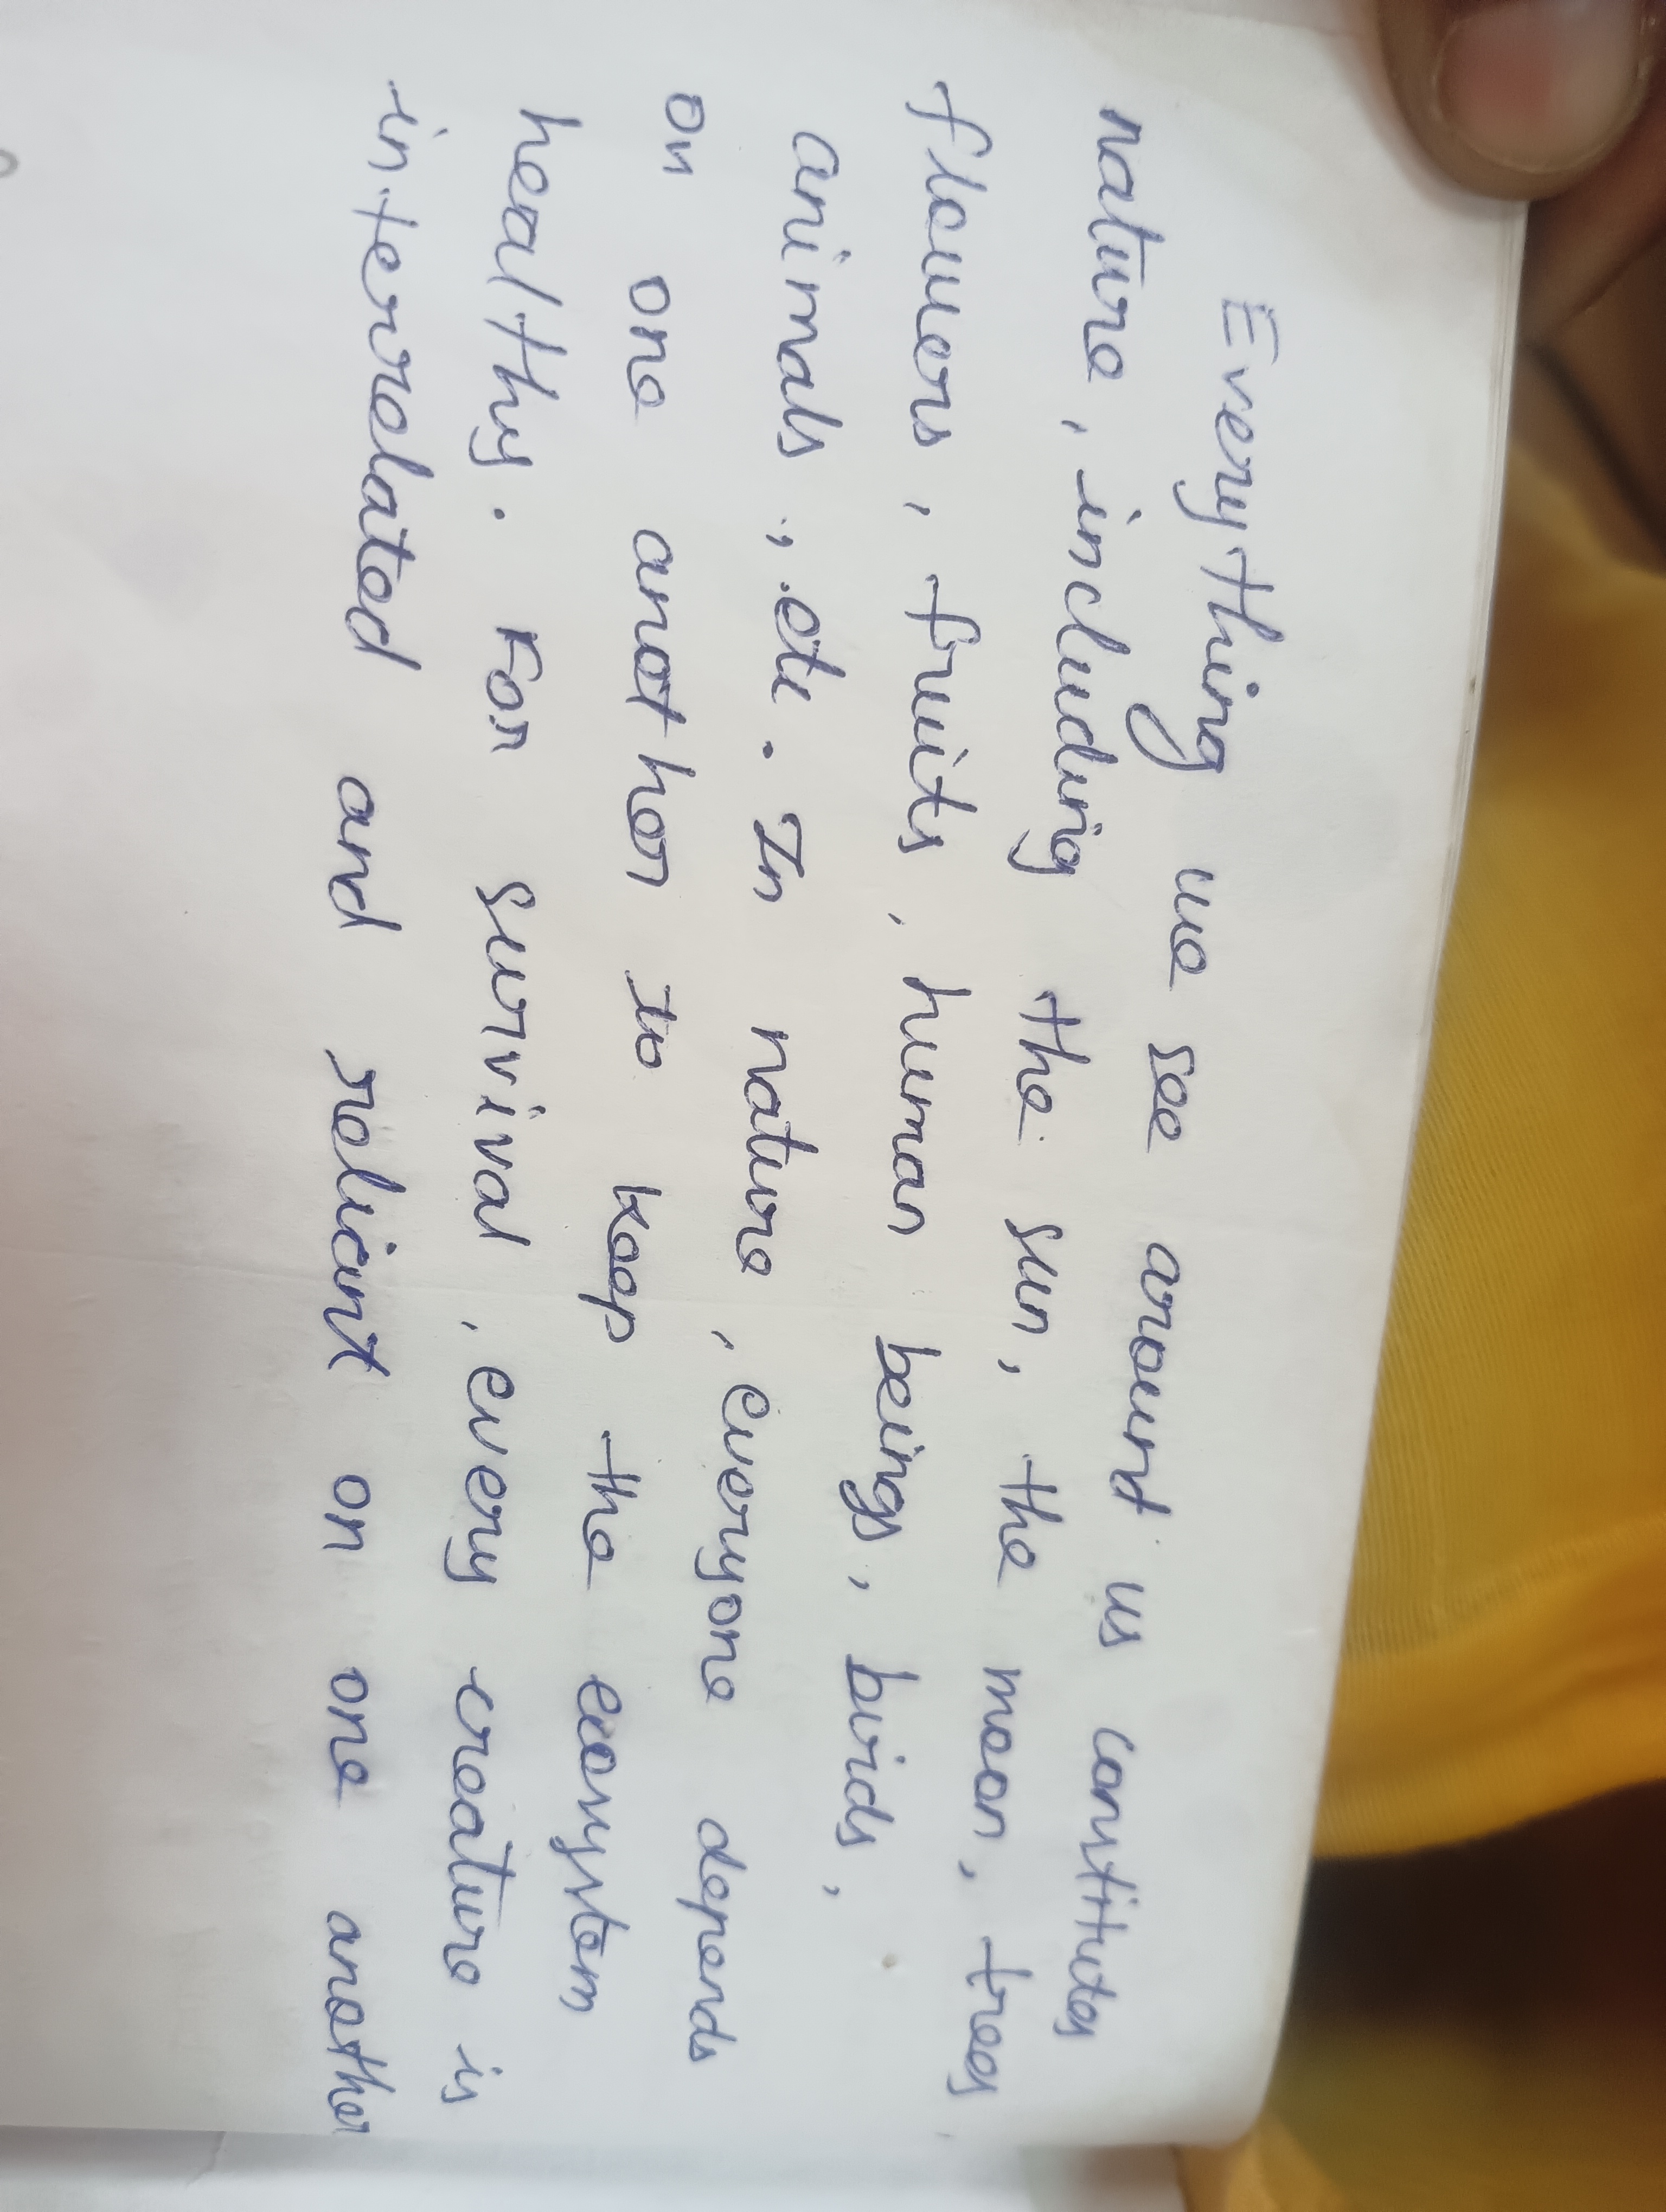 Everything we see around us constitutes
nature, including the sun, the moon, trees,
flowers, fruits, human beings, birds,
animals, etc. In nature, everyone depends
on one another to keep the ecosystem
healthy. For survival, every creature is
interrelated and reliant on one another